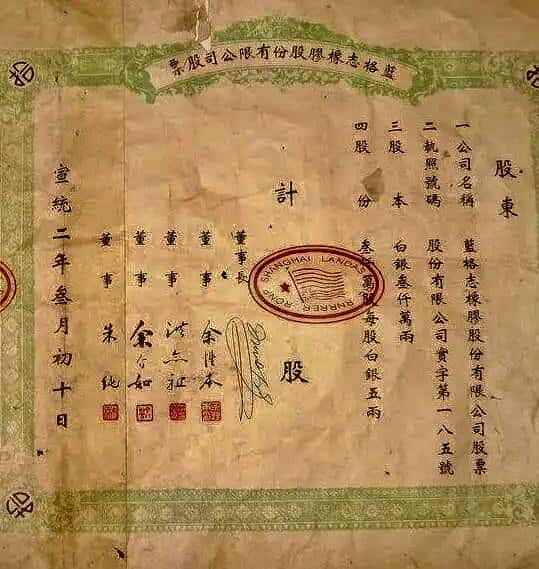 藍格志橡膠股份有限公司股票
股東
一公司名稱 藍格志橡膠股份有限公司股票
二執照號碼 股份有限公司實字第一八五號
三股本 白銀叁仟萬兩
四股份 叁仟萬股每股白銀五兩
計 股
SHANGHAI LANDAS
RNRRER RONG
董事長
董事 余 本
董事 洪
董事 余介如
董事 朱純
宣統二年叁月初十日